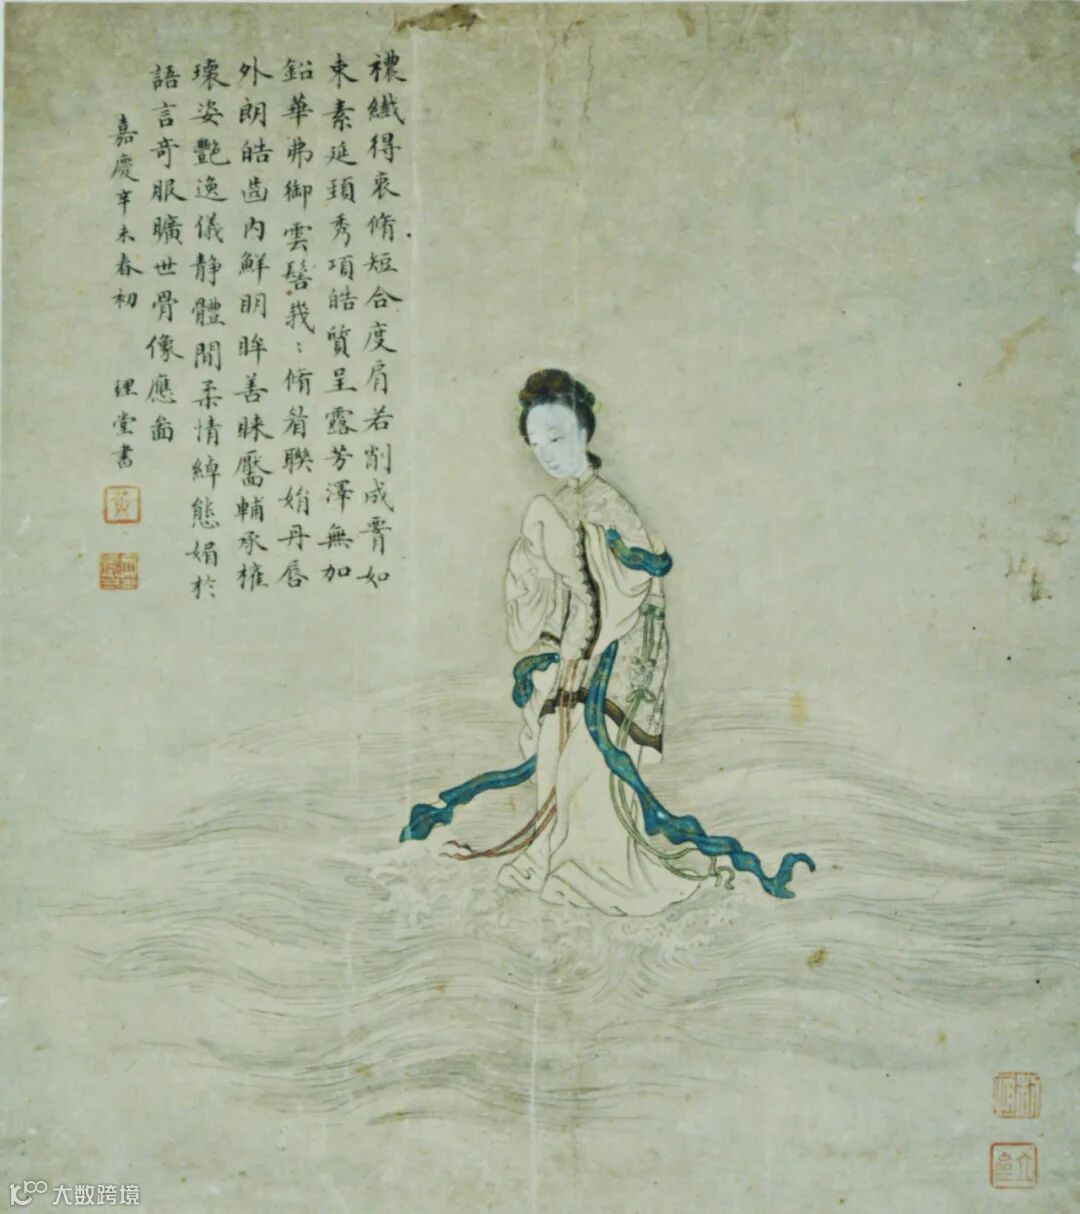 襛纖得衷脩短合度肩若削成腰如
束素延頸秀項皓質呈露芳澤無加
鉛華弗御雲髻峩〻脩眉聯娟丹唇
外朗皓齒內鮮明眸善睞靨輔承權
瓌姿艷逸儀靜體閒柔情綽態媚於
語言奇服曠世骨像應啚
嘉慶辛未春初 理堂書
黃
大数跨境